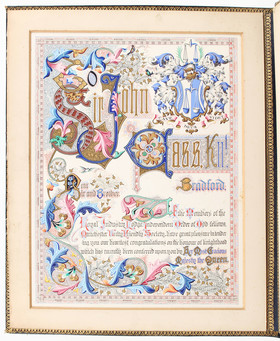 Sir John
Cass, Knt.
Bradford.
Dear
Sir and Brother,
We the Members of the
Royal Industry Lodge Independent Order of Odd Fellows,
Manchester Unity Friendly Society, have great pleasure in tender-
ing you our heartiest congratulations on the honour of knighthood
which has recently been conferred upon you by Her Most Gracious
Majesty the Queen.